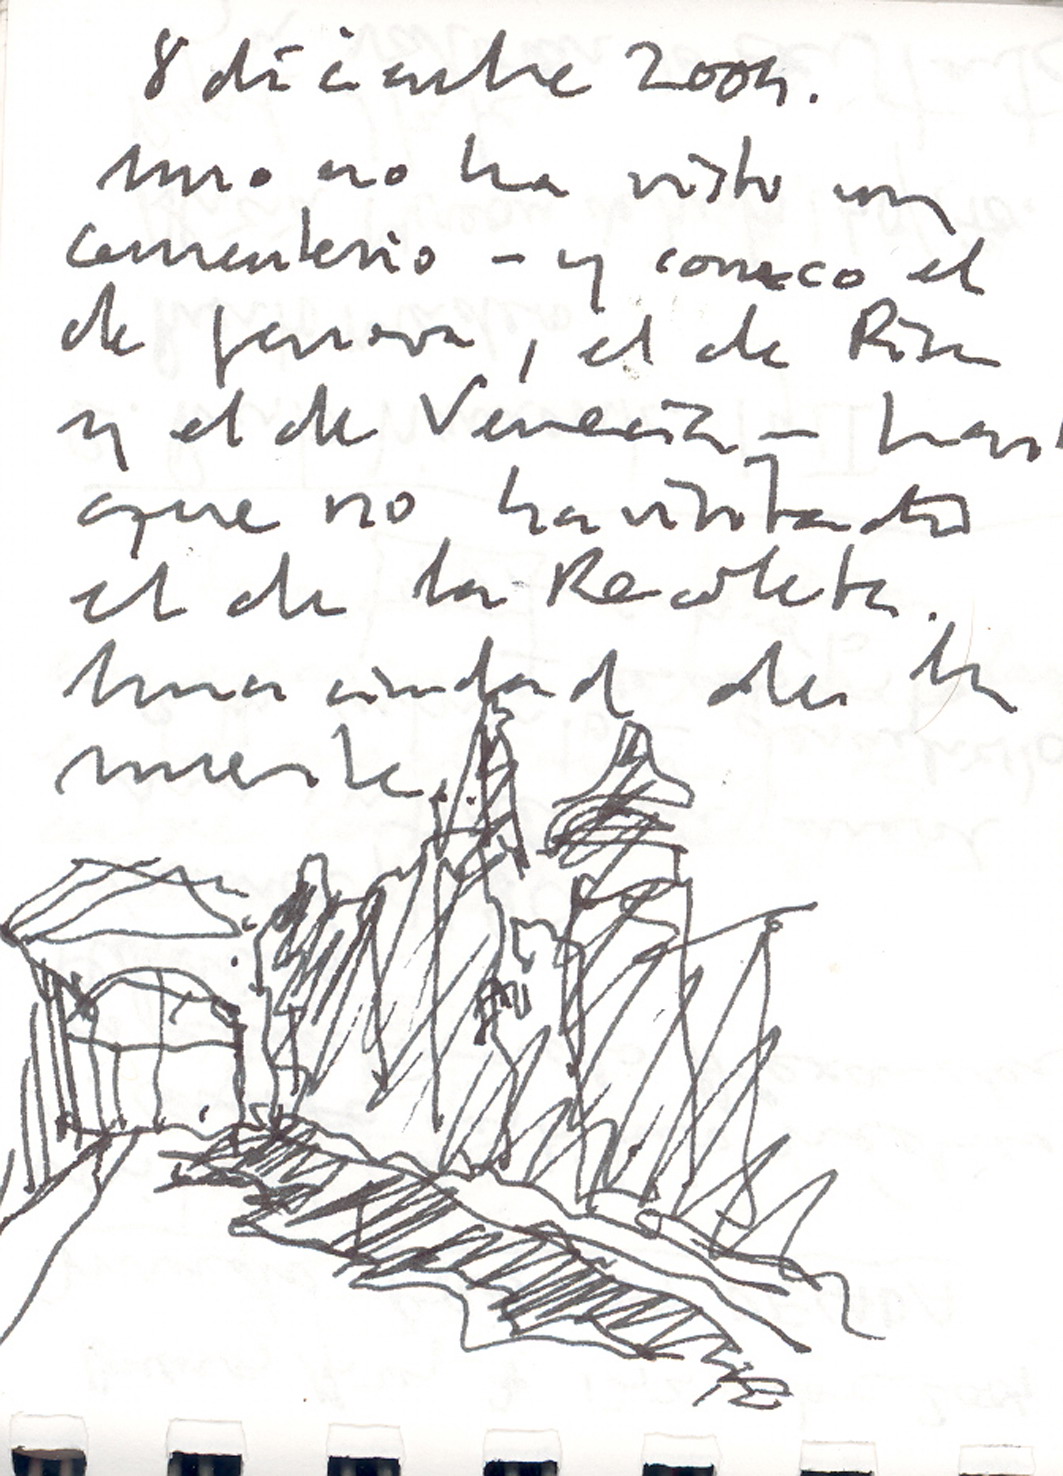 8 diciembre 2004.
uno no ha visto un
cementerio - y conozco el
de Genova, el de Pisa
y el de Venecia - hasta
que no ha visitado
el de la Recoleta.
Una ciudad de la
muerte.